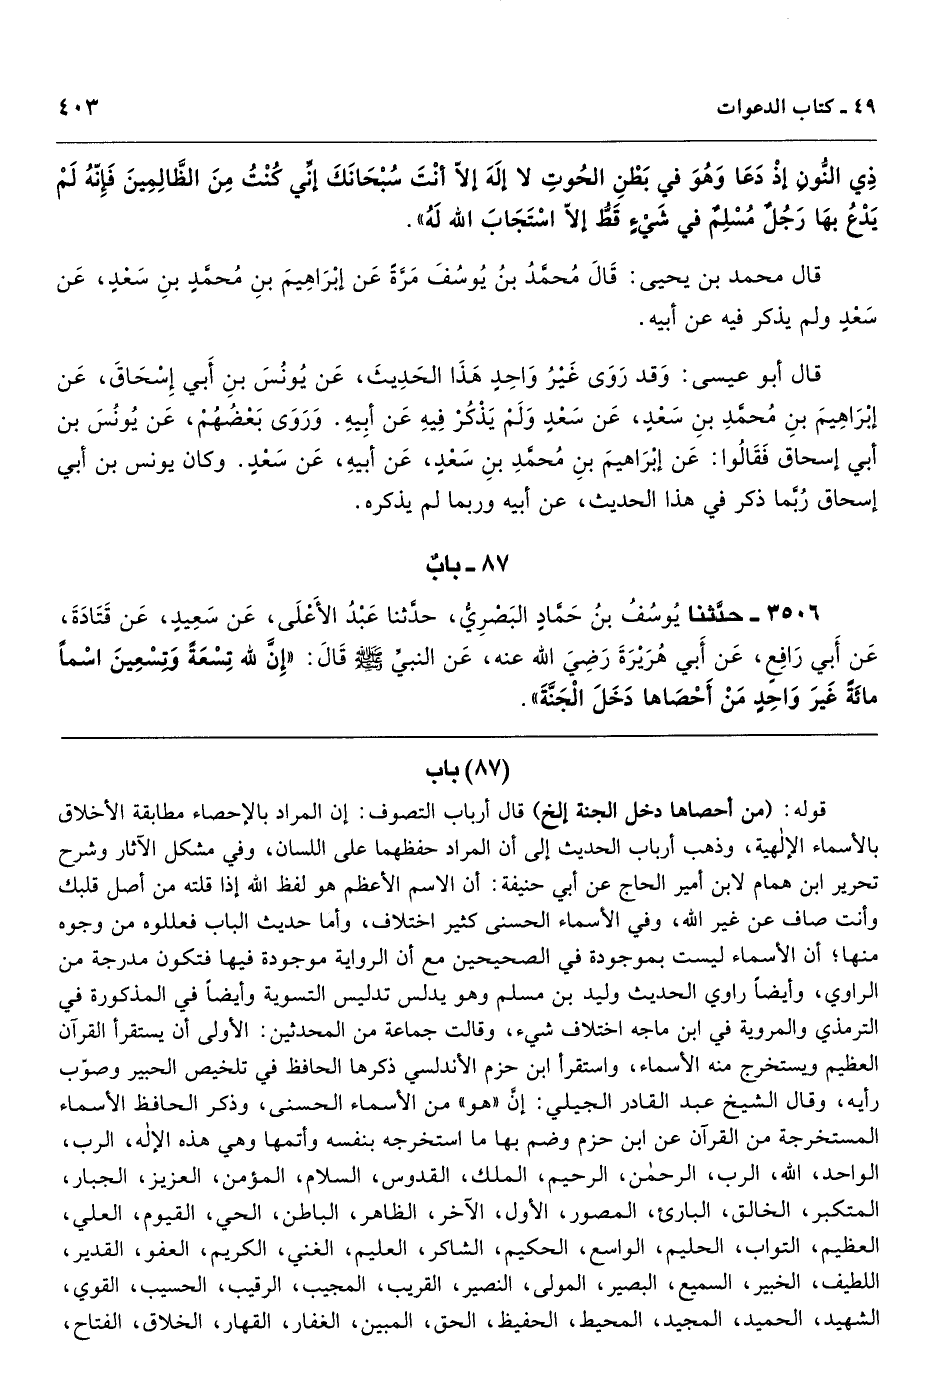 ٤٩ ـ كتاب الدعوات
٤٠٣
ذِي النُّونِ إذْ دَعَا وَهُوَ في بَطْنِ الحُوتِ لا إلَهَ إلاّ أنْتَ سُبْحَانَكَ إنِّي كُنْتُ مِنَ الظَّالِمِينَ فَإِنّهُ لَمْ
يَدْعُ بهَا رَجُلٌ مُسْلِمٌ في شَيْءٍ قَطُّ إلاّ اسْتَجَابَ الله لَهُ».
قال محمد بن يحيى: قَالَ مُحمَّدُ بنُ يُوسُفَ مَرَّةً عَن إبْرَاهِيمَ بنِ مُحمَّدٍ بنِ سَعْدٍ، عَن
سَعْدٍ ولم يذكر فيه عن أبيه.
قال أبو عيسى: وَقد رَوَى غَيْرُ وَاحِدٍ هَذَا الحَدِيثَ، عَن يُونُسَ بنِ أَبي إِسْحَاقَ، عَن
إبْرَاهِيمَ بن مُحمَّدِ بنِ سَعْدٍ، عَن سَعْدٍ وَلَمْ يَذْكُرْ فِيهِ عَن أَبِيهِ. وَرَوَى بَعْضُهُمْ، عَن يُونُسَ بن
أبي إسحاق فَقَالُوا: عَن إبْرَاهيمَ بنِ مُحمَّدِ بنِ سَعْدٍ، عَن أبيهِ، عَن سَعْدٍ. وكان يونس بن أبي
إسحاق رُبَّما ذكر في هذا الحديث، عن أبيه وربما لم يذكره.
٨٧ ـ بابٌ
٣٥٠٦ ـ حدَّثنا يُوسُفُ بنُ حَمَّادٍ البَصْرِيُّ، حدَّثنا عَبْدُ الأَعْلَى، عَن سَعِيدٍ، عَن قَتَادَةَ،
عَن أَبي رَافِعٍ، عَن أَبي هُرَيْرَةَ رَضِيَ الله عنه، عَن النبيِّ ﷺ قَالَ: «إِنَّ لله تِسْعَةً وَتِسْعِينَ اسْماً
مائَةً غَيرَ وَاحِدٍ مَنْ أَحْصَاها دَخَلَ الْجَنَّةَ».
(٨٧) باب
قوله: (من أحصاها دخل الجنة إلخ) قال أرباب التصوف: إن المراد بالإحصاء مطابقة الأخلاق
بالأسماء الإلٰهية، وذهب أرباب الحديث إلى أن المراد حفظهما على اللسان، وفي مشكل الآثار وشرح
تحرير ابن همام لابن أمير الحاج عن أبي حنيفة: أن الاسم الأعظم هو لفظ الله إذا قلته من أصل قلبك
وأنت صاف عن غير الله، وفي الأسماء الحسنى كثير اختلاف، وأما حديث الباب فعللوه من وجوه
منها؛ أن الأسماء ليست بموجودة في الصحيحين مع أن الرواية موجودة فيها فتكون مدرجة من
الراوي، وأيضاً راوي الحديث وليد بن مسلم وهو يدلس تدليس التسوية وأيضاً في المذكورة في
الترمذي والمروية في ابن ماجه اختلاف شيء، وقالت جماعة من المحدثين: الأولى أن يستقرأ القرآن
العظيم ويستخرج منه الأسماء، واستقرأ ابن حزم الأندلسي ذكرها الحافظ في تلخيص الحبير وصوّب
رأيه، وقال الشيخ عبد القادر الجيلي: إنَّ «هو» من الأسماء الحسنى، وذكر الحافظ الأسماء
المستخرجة من القرآن عن ابن حزم وضم بها ما استخرجه بنفسه وأتمها وهي هذه الإلٰه، الرب،
الواحد، الله، الرب، الرحمٰن، الرحيم، الملك، القدوس، السلام، المؤمن، العزيز، الجبار،
المتكبر، الخالق، البارئ، المصور، الأول، الآخر، الظاهر، الباطن، الحي، القيوم، العلي،
العظيم، التواب، الحليم، الواسع، الحكيم، الشاكر، العليم، الغني، الكريم، العفو، القدير،
اللطيف، الخبير، السميع، البصير، المولى، النصير، القريب، المجيب، الرقيب، الحسيب، القوي،
الشهيد، الحميد، المجيد، المحيط، الحفيظ، الحق، المبين، الغفار، القهار، الخلاق، الفتاح،